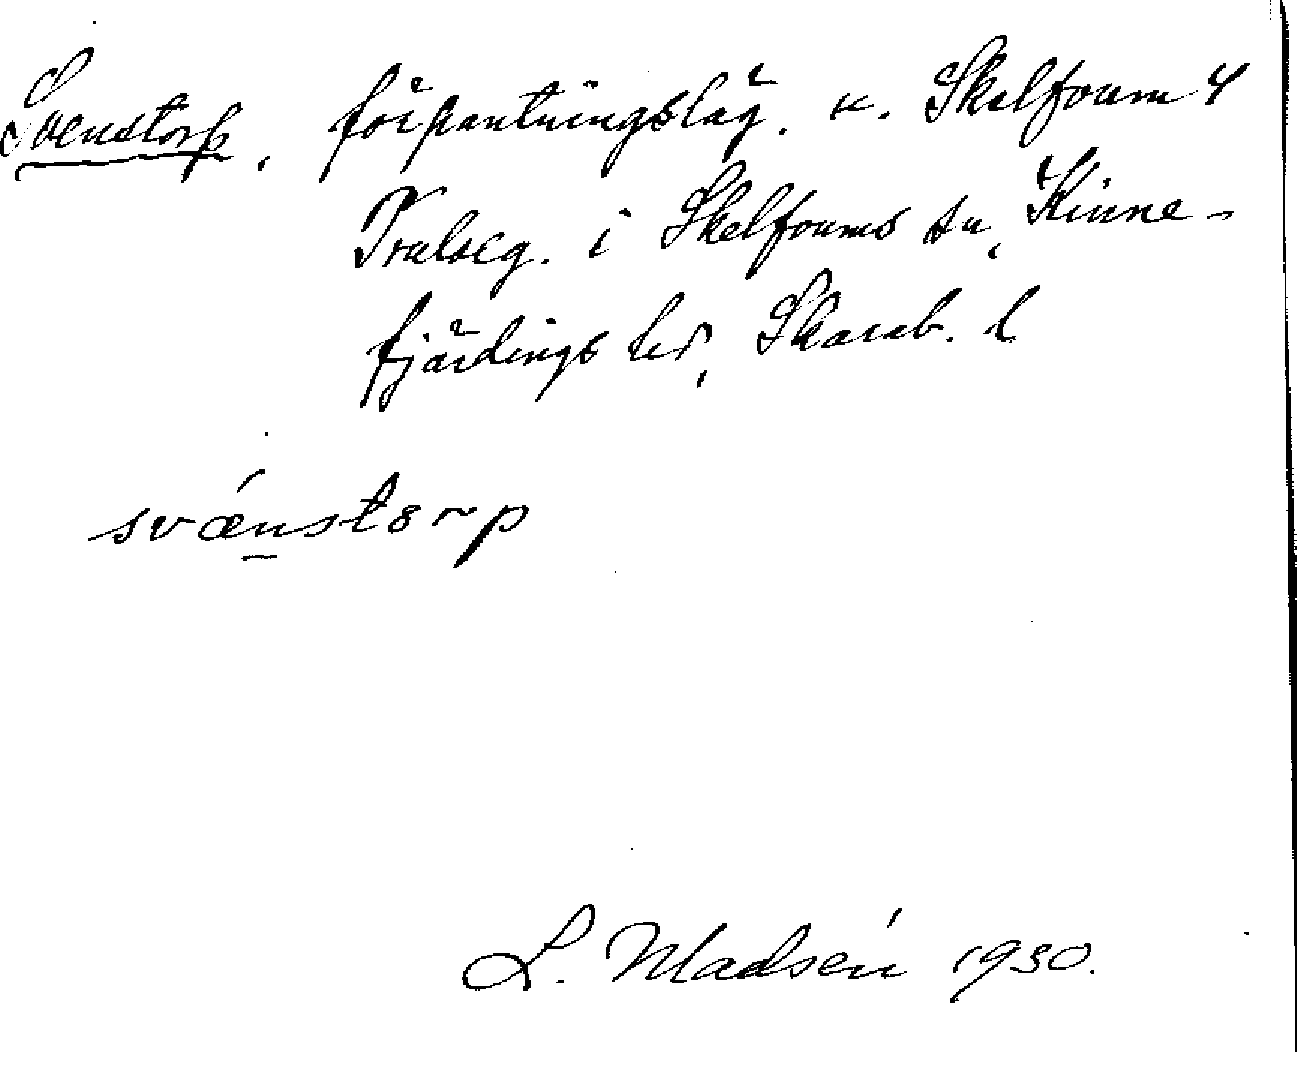 Svenstorp, förpantningsläg. u. Skelfoum 4
Prulseg. i Skelfoums sn, Kinne-
fjärdings hd, Skarab. l
svǽnstorp
L. Madsén 1930.